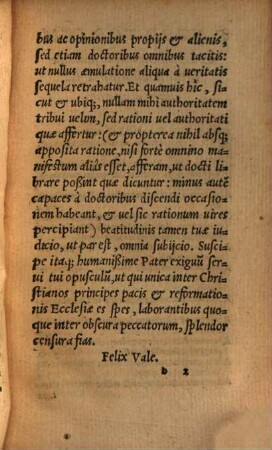 bus ac opinionibus proprijs & alienis,
sed etiam doctoribus omnibus tacitis:
ut nullus æmulatione aliqua à ueritatis
sequela retrahatur. Et quamuis hîc, si-
cut & ubiq;, nullam mihi authoritatem
tribui uelim, sed rationi uel authoritati
quæ affertur: (& propterea nihil absq;
apposita ratione, nisi fortè omnino ma-
nifestum aliâs esset, afferam, ut docti li-
brare poßint quæ dicuntur: minus autē
capaces à doctoribus discendi occasio-
nem habeant, & uel sic rationum uires
percipiant) beatitudinis tamen tuæ iu-
dicio, ut par est, omnia subijcio. Susci-
pe itaq; humanißime Pater exiguū ser-
ui tui opusculū, ut qui unica inter Chri-
stianos principes pacis & reformatio-
nis Ecclesiæ es spes, laborantibus quo-
que inter obscura peccatorum, splendor
censura fias.
Felix Vale.
b 2